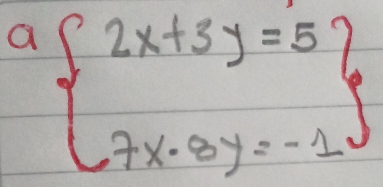 a { 2x+3y=5 }
7x-8y=-1